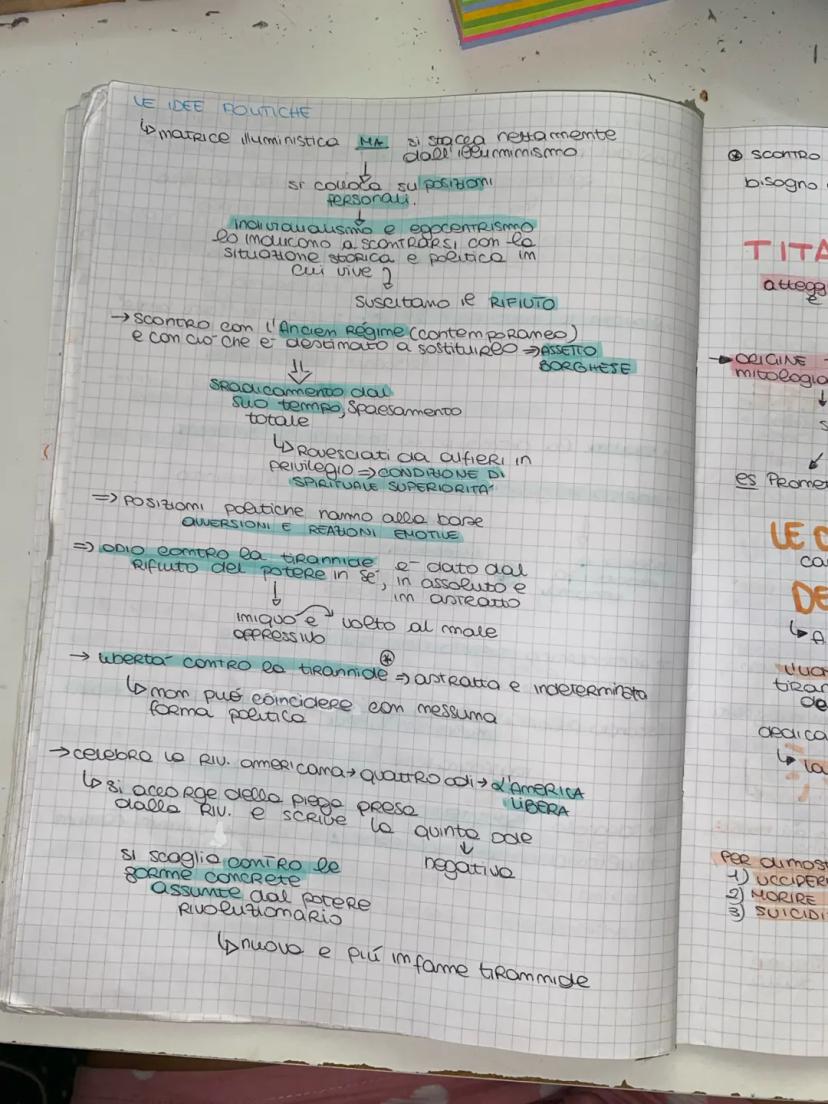 LE IDEE POLITICHE
↳ MATRICE illuministica MA si stacca nettamente
dall'illuminismo
↓
si colloca su posizioni
personali.
↓
individualismo e egocentrismo
lo inducono a scontrarsi con la
situazione storica e politica in
cui vive
suscitano il RIFIUTO
→ scontro con l'Ancien Régime (contemporaneo)
e con ciò che è destinato a sostituirlo ⇒ ASSETTO
BORGHESE
⇓
SRadicamento dal
suo tempo, spaesamento
totale
↳ Rovesciati da alfieri in
privilegio ⇒ CONDIZIONE DI
SPIRITUALE SUPERIORITÀ
⇒ posizioni politiche hanno alla base
AVVERSIONI E REAZIONI EMOTIVE
⇒ ODIO contro la tirannide è dato dal
Rifiuto del potere in sé, in assoluto e
in astratto
↓
iniquo e volto al male
oppressivo
→ libertà contro la tirannide ⊛ ⇒ astratta e indeterminata
↳ non può coincidere con nessuna
forma politica
→ celebra la RIV. americana → quattro odi → L'AMERICA
LIBERA
↳ si accorge della piega presa
dalla RIV. e scrive la quinta ode
↓
negativa
si scaglia contro le
forme concrete
assunte dal potere
rivoluzionario
↳ nuova e più infame tirannide
⊛ SCONTRO
bisogno
TITA
attegg
e
→ ORIGINE
mitologia
↓
es Promet
LE
ca
DE
↳ A
L'uo
tiran
de
dedica
↳ la
PER dimost
1) UCCIDER
2) MORIRE
3) SUICIDI